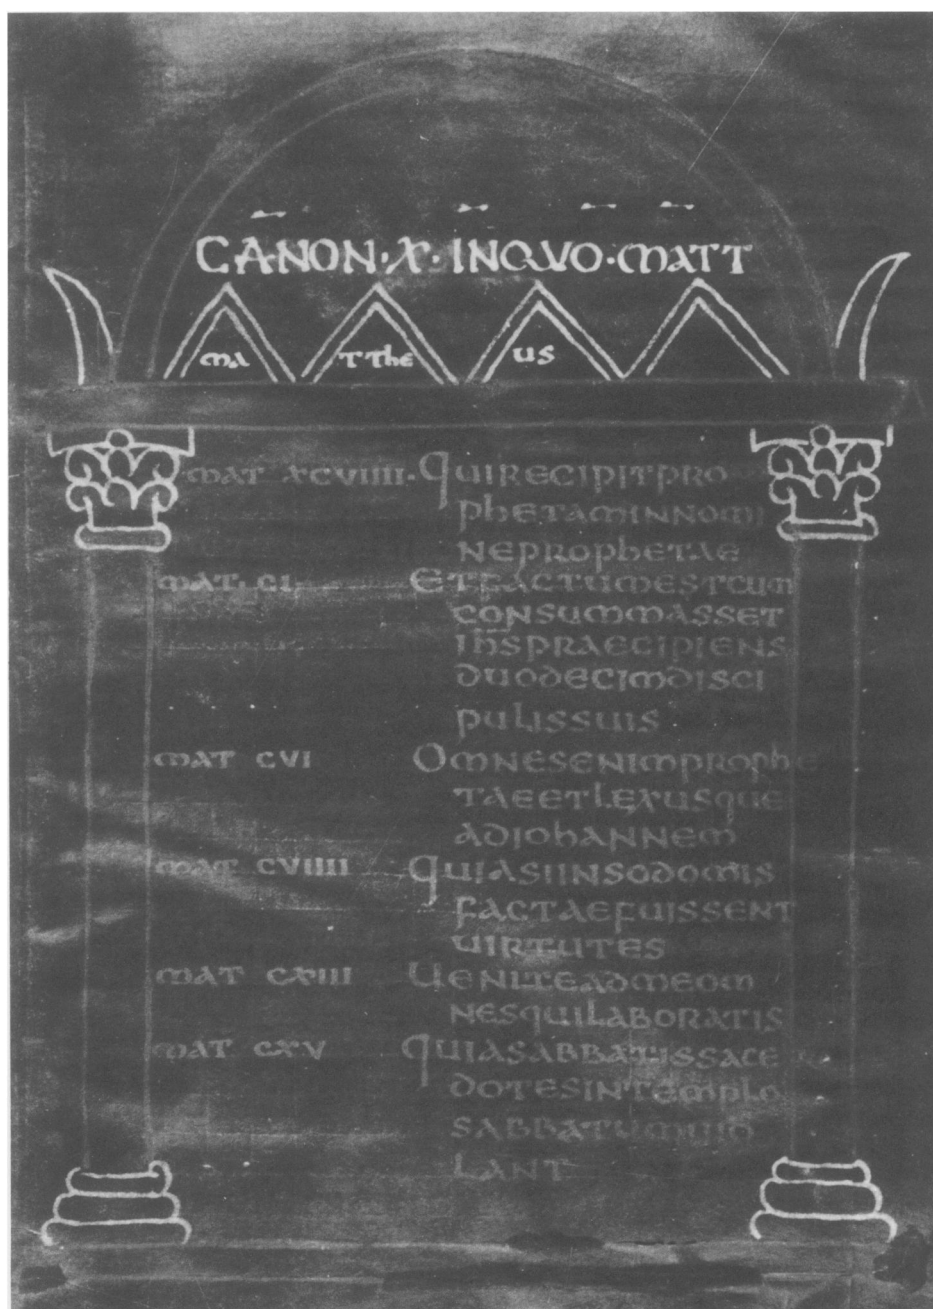 CANON·X·INQUO·MATT
MA TTHE US
MAT XCVIIII·QUIRECIPITPRO
PHETAMINNOMI
NEPROPHETAE
MAT·CI· ETFACTUMESTCUM
CONSUMMASSET
IHSPRAECIPIENS
DUODECIMDISCI
PULISSUIS
MAT CVI OMNESENIMPROPHE
TAEETLEXUSQUE
ADIOHANNEM
MAT CVIIII QUIASIINSODOMIS
FACTAEFUISSENT
UIRTUTES
MAT CXIII UENITEADMEOM
NESQUILABORATIS
MAT CXV QUIASABBATISSACE
DOTESINTEMPLO
SABBATUMUIO
LANT